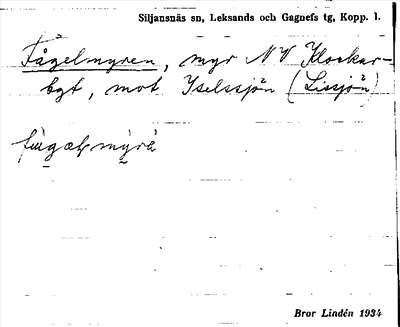 Siljansnäs sn, Leksands och Gagnefs tg, Kopp. l.
Fågelmyren, myr NV Klockar-
byt, mot Yselssjön (Lissjön)
Bror Lindén 1934